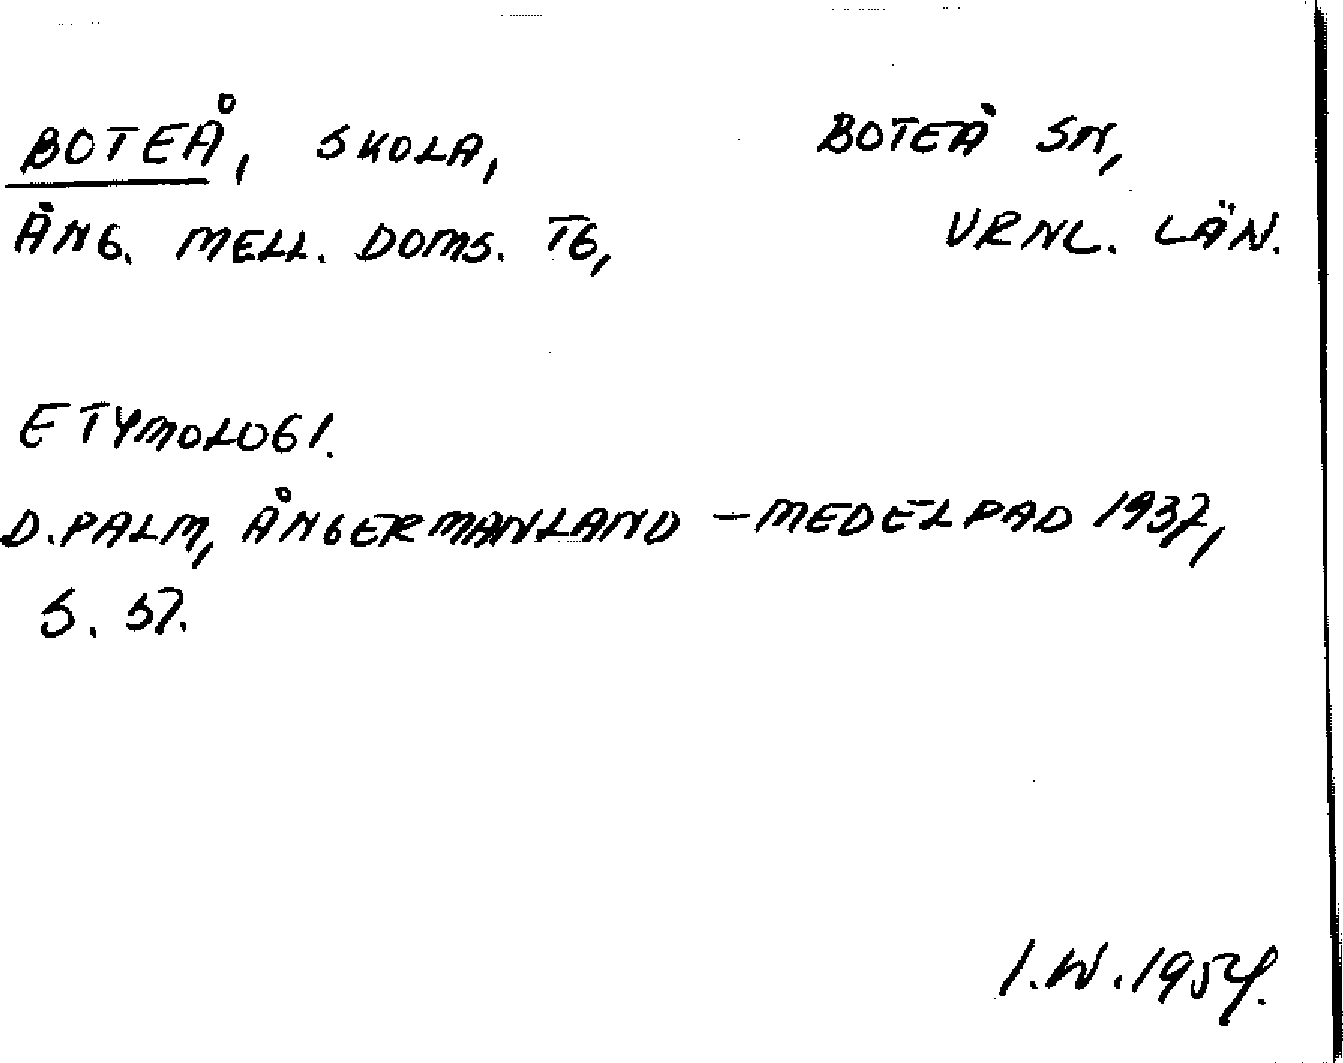 BOTEÅ, SKOLA, BOTEÅ SN,
ÅNG. MELL. DOMS. TG, VRNL. LÄN.
ETYMOLOGI.
D. PALM, ÅNGERMANLAND - MEDELPAD 1937,
S. 57.
I.W. 1954.